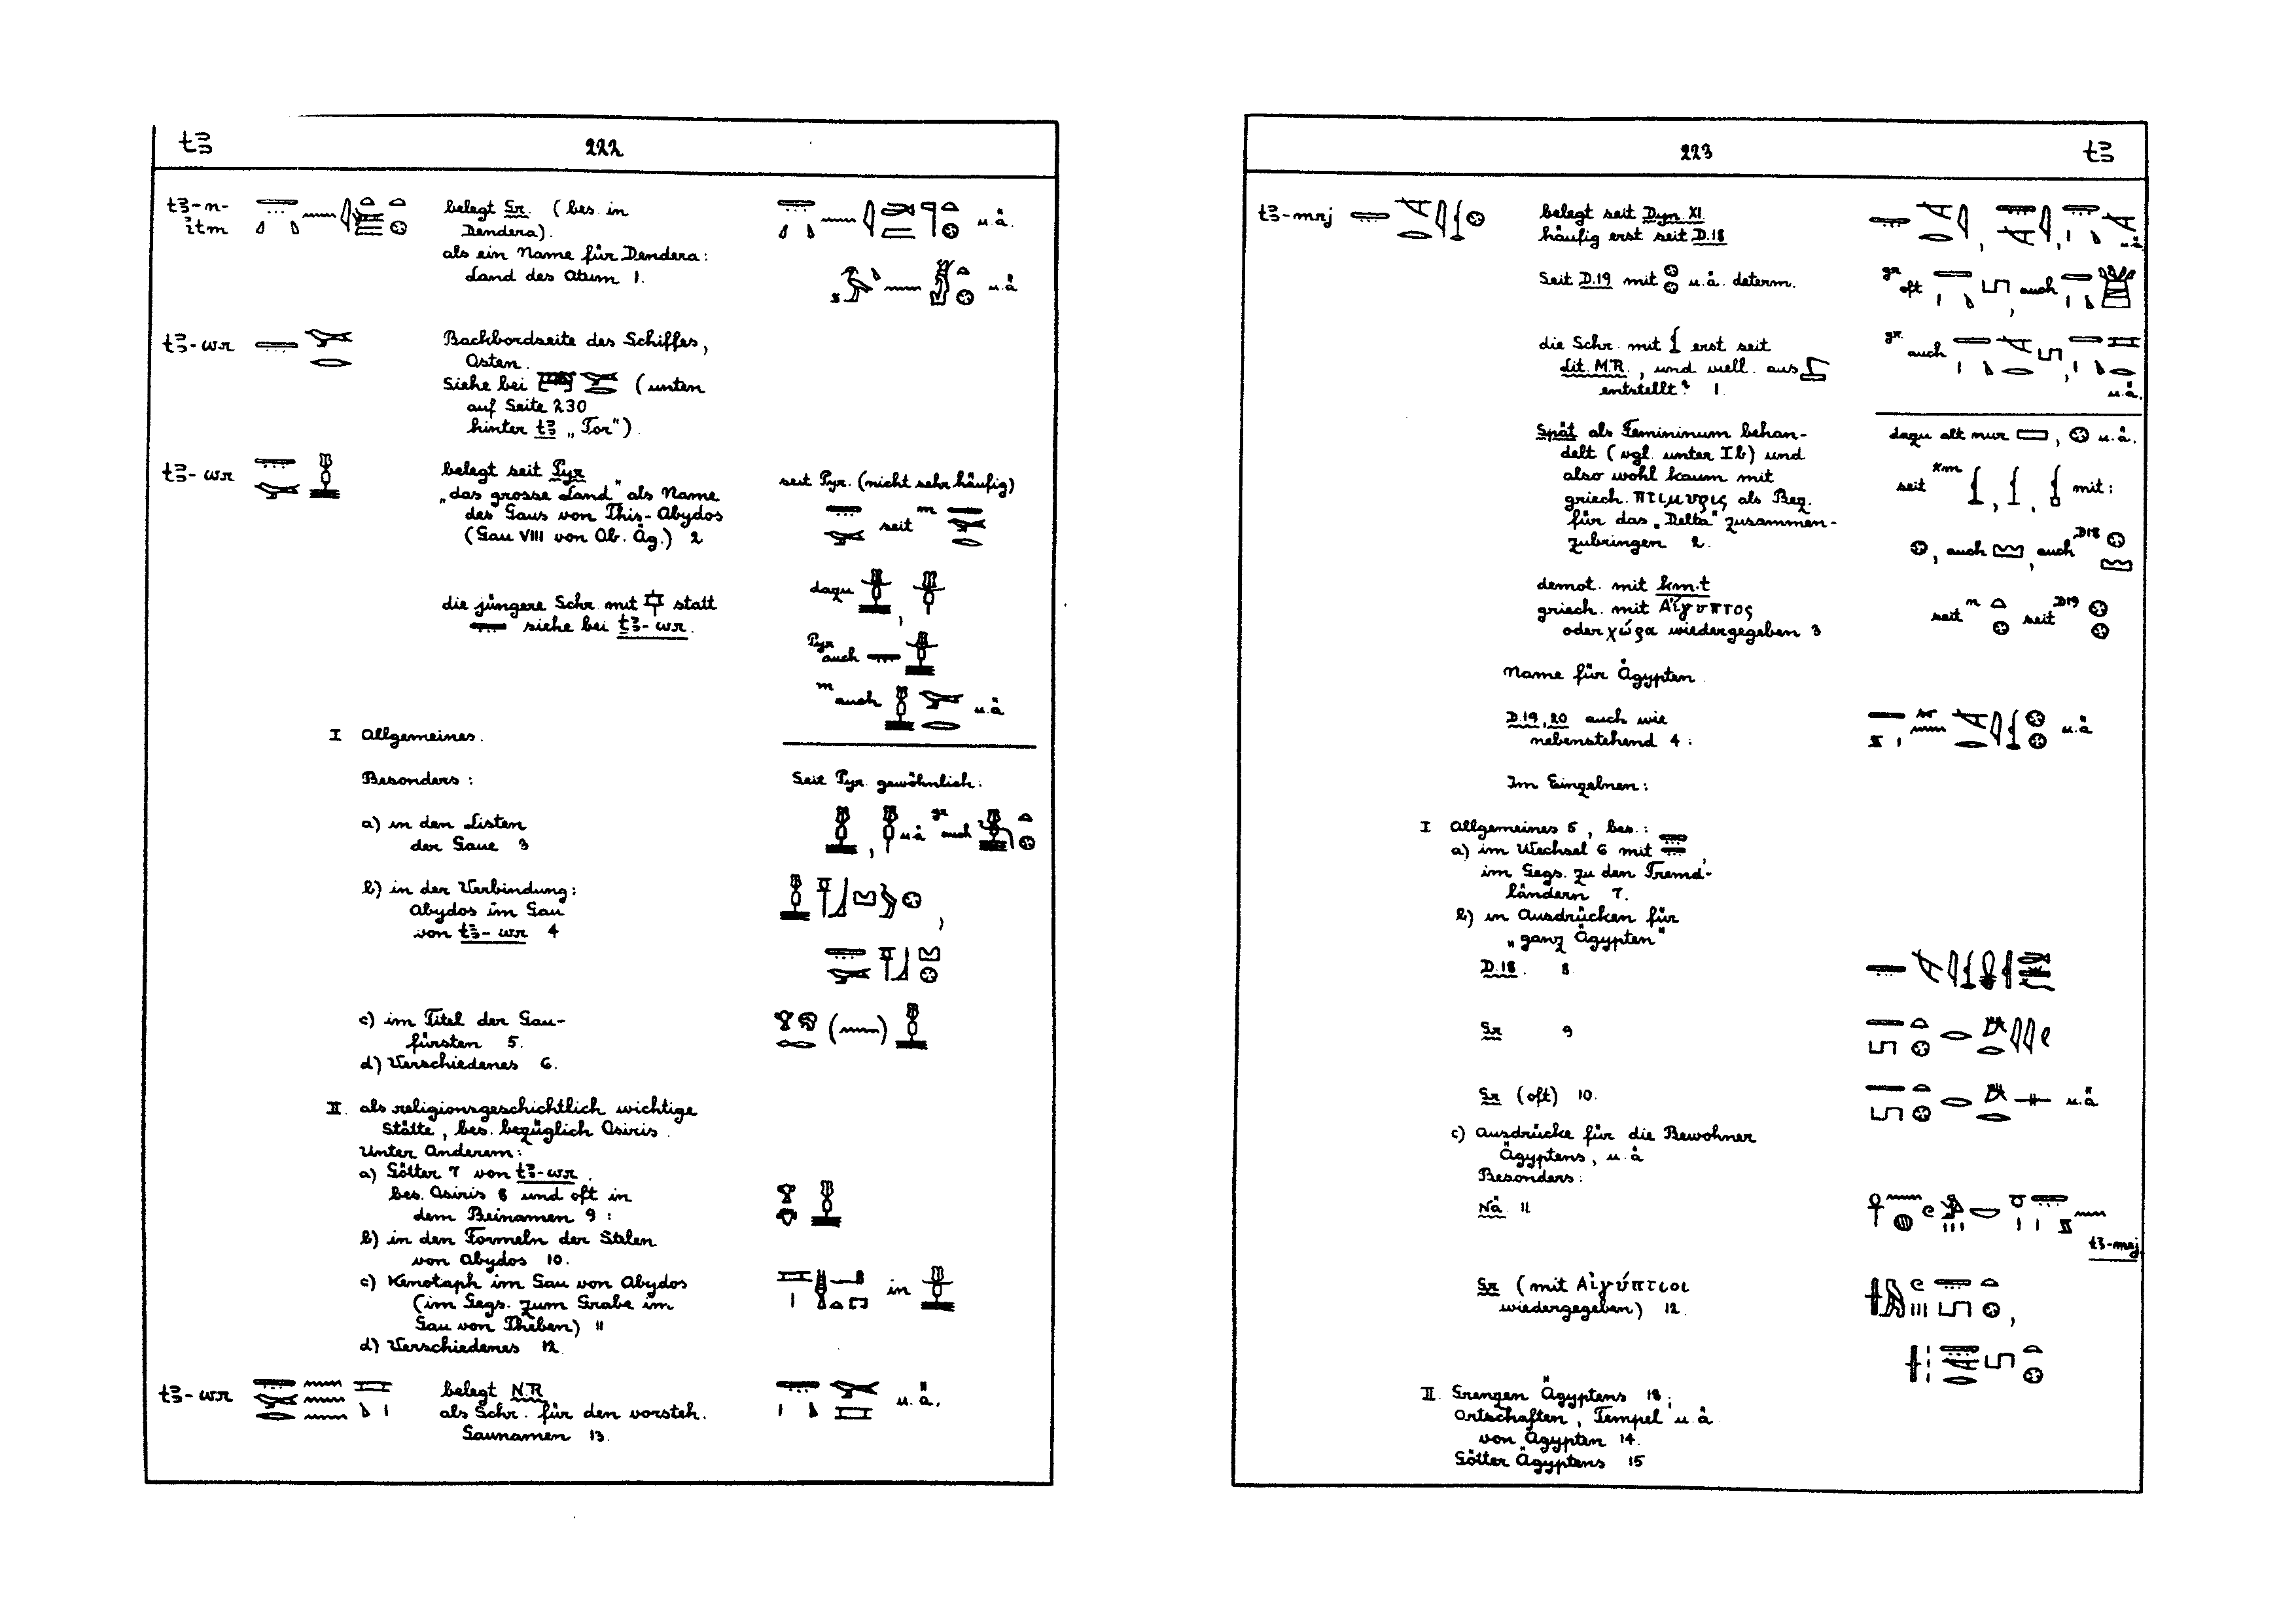 tꜣ
222
tꜣ-n-
ꞽtm
belegt Gr. (bes. in
Dendera).
als ein Name für Dendera:
Land des Atum 1.
u.ä.
u.ä
tꜣ-wr
Backbordseite des Schiffes,
Osten.
Siehe bei (unten
auf Seite 230
hinter tꜣ „Tor")
tꜣ-wr
belegt seit Pyr
„das grosse Land" als Name
des Gaus von This-Abydos
(Gau VIII von Ob. Äg.) 2
die jüngere Schr. mit statt
siehe bei tꜣ-wr.
seit Pyr. (nicht sehr häufig)
seit m
dazu ,
Pyr
auch
m auch u.ä
I Allgemeines.
Besonders:
a) in den Listen
der Gaue 3
b) in der Verbindung:
Abydos im Gau
von tꜣ-wr 4
c) im Titel der Gau-
fürsten 5.
d) Verschiedenes 6.
Seit Pyr. gewöhnlich:
, u.ä gr auch
,
( )
II. als religionsgeschichtlich wichtige
Stätte, bes. bezüglich Osiris.
Unter Anderem:
a) Götter 7 von tꜣ-wr.
bes. Osiris 8 und oft in
dem Beinamen 9:
b) in den Formeln der Stelen
von Abydos 10.
c) Kenotaph im Gau von Abydos
(im Gegs. zum Grabe im
Gau von Theben) 11
d) Verschiedenes 12
in
tꜣ-wr
belegt N.R.
als Schr. für den vorsteh.
Gaunamen 13.
u.ä.
223
tꜣ
tꜣ-mrj
belegt seit Dyn. XI.
häufig erst seit D.18
Seit D.19 mit u.ä. determ.
die Schr. mit erst seit
Lit. M.R., und viell. aus
entstellt? 1.
Spät als Femininum behan-
delt (vgl. unter Ib) und
also wohl kaum mit
griech. πτιμυρις als Bez.
für das „Delta" zusammen-
zubringen 2.
demot. mit km.t
griech. mit Αἴγυπτος
oder χώρα wiedergegeben 3
, , u.ä
gr oft , auch
gr. auch ,
u.ä.
dazu alt nur , u.ä.
seit , , mit:
, auch , auch D18
seit n seit D19
Name für Ägypten.
D.19, 20 auch wie
nebenstehend 4:
u.ä
Im Einzelnen:
I Allgemeines 5, bes.:
a) im Wechsel 6 mit ,
im Gegs. zu den Fremd-
ländern 7.
b) in Ausdrücken für
„ganz Ägypten"
D.18. 8
Gr 9
Gr (oft) 10.
u.ä
c) Ausdrücke für die Bewohner
Ägyptens, u.ä
Besonders:
Nä 11
tꜣ-mrj
Gr (mit Αἰγύπτιοι
wiedergegeben) 12.
,
II. Grenzen Ägyptens 13;
Ortschaften, Tempel u.ä
von Ägypten 14.
Götter Ägyptens 15